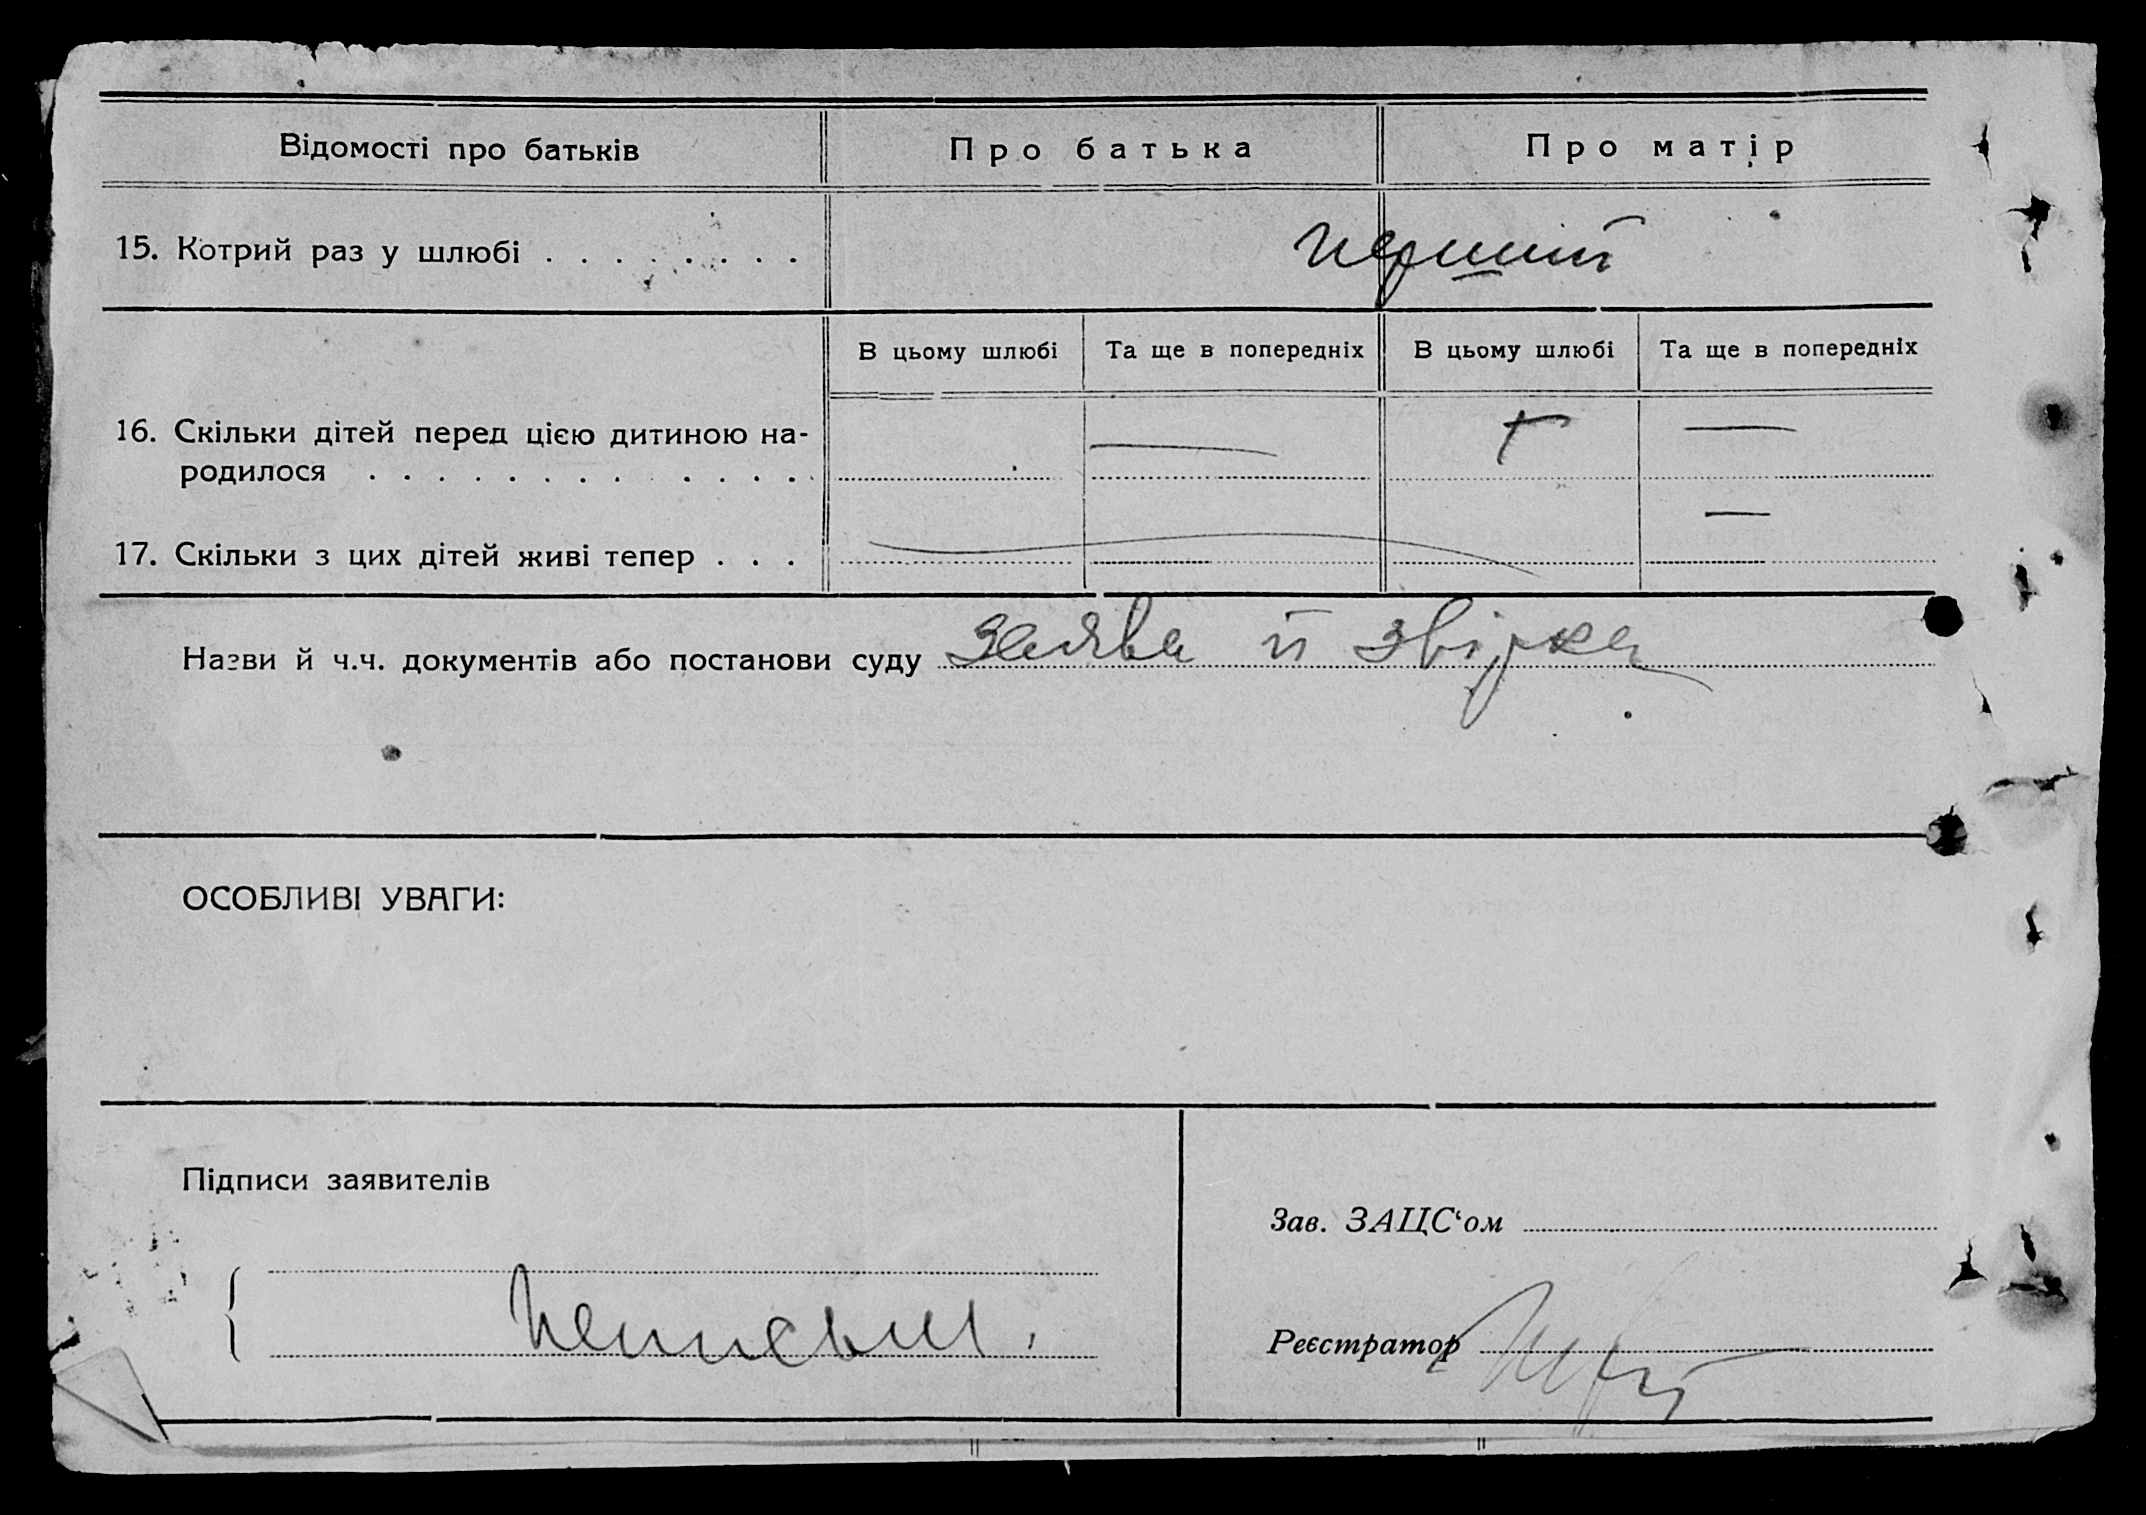 Відомості про батьків
Про батька
Про матір
15. Котрий раз у шлюбі . . . . . . . .
перший
В цьому шлюбі
Та ще в попередніх
В цьому шлюбі
Та ще в попередніх
16. Скільки дітей перед цією дитиною на-
родилося . . . . . . . . . . . . . . .
17. Скільки з цих дітей живі тепер . . .
Назви й ч.ч. документів або постанови суду заява й звірка
ОСОБЛИВІ УВАГИ:
Підписи заявителів
Зав. ЗАЦС‘ом
Реєстратор